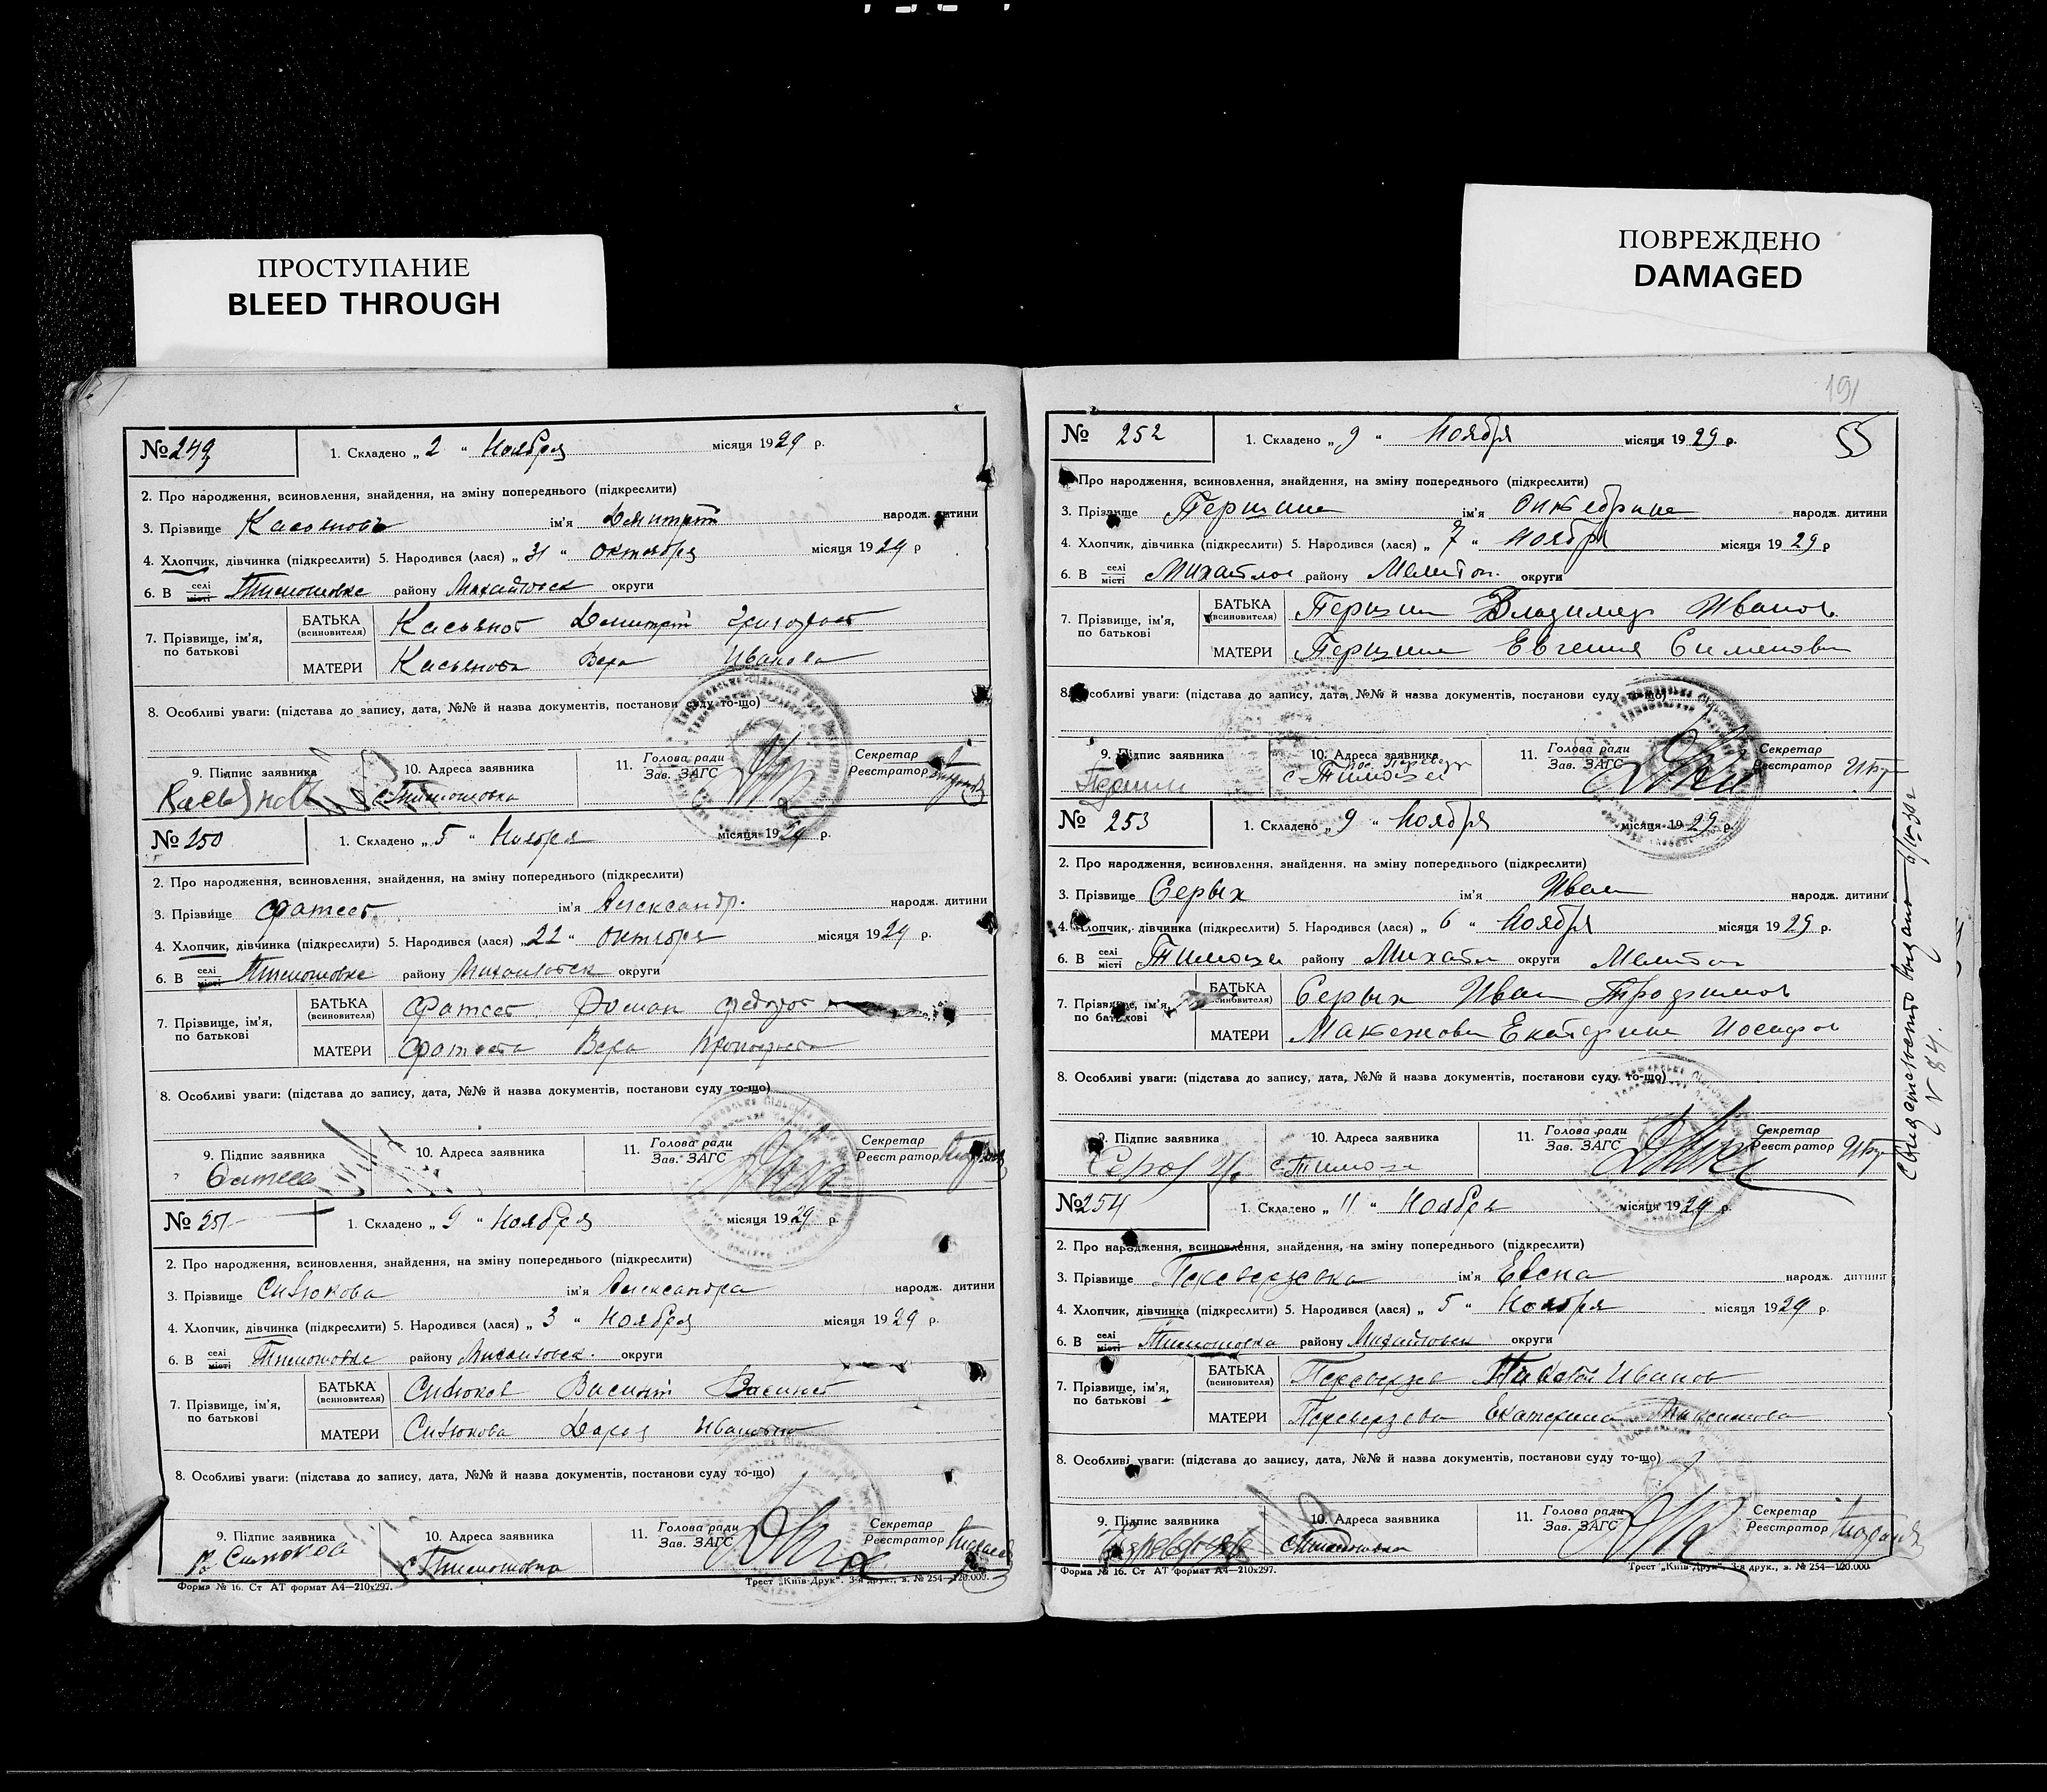 ПРОСТУПАНИЕ
BLEED THROUGH
ПОВРЕЖДЕНО
DAMAGED
№ 249
1. Складено „ 2 “ Ноября місяця 1929 р.
2. Про народження, всиновлення, знайдення, на зміну попереднього (підкреслити)
3. Прізвище Касьянов ім'я Дмитрий народж. дитини
4. Хлопчик, дівчинка (підкреслити) 5. Народився (лася) „ 31 “ Октября місяця 1929 р
6. В селі місті Тимошовке району Михайловск округи
7. Прізвище, ім'я, по батькові
БАТЬКА (всиновителя) Касьянов Дмитрий Григорьев
МАТЕРИ Касьянова Вера Иванова
8. Особливі уваги: (підстава до запису, дата, №№ й назва документів, постанови суду то-що)
9. Підпис заявника 10. Адреса заявника 11. Голова ради Зав. ЗАГС Секретар Реєстратор
Касьянов с Тимошовка
№ 250
1. Складено „ 5 “ Ноября місяця 1929 р.
2. Про народження, всиновлення, знайдення, на зміну попереднього (підкреслити)
3. Прізвище Фатеев ім'я Александр. народж. дитини
4. Хлопчик, дівчинка (підкреслити) 5. Народився (лася) „ 22 “ Октября місяця 1929 р.
6. В селі місті Тимошовке району Михайловск округи
7. Прізвище, ім'я, по батькові
БАТЬКА (всиновителя) Фатеев Роман Федоров
МАТЕРИ Фатеева Вера
8. Особливі уваги: (підстава до запису, дата, №№ й назва документів, постанови суду то-що)
9. Підпис заявника 10. Адреса заявника 11. Голова ради Зав. ЗАГС Секретар Реєстратор
Фатеев
№ 251
1. Складено „ 9 “ Ноября місяця 1929 р.
2. Про народження, всиновлення, знайдення, на зміну попереднього (підкреслити)
3. Прізвище Сивюкова ім'я Александра народж. дитини
4. Хлопчик, дівчинка (підкреслити) 5. Народився (лася) „ 3 “ Ноября місяця 1929 р.
6. В селі місті Тимошовке району Михайловск. округи
7. Прізвище, ім'я, по батькові
БАТЬКА (всиновителя) Сивюков Василий Васильев
МАТЕРИ Сивюкова Дарья Ивановна
8. Особливі уваги: (підстава до запису, дата, №№ й назва документів, постанови суду то-що)
9. Підпис заявника 10. Адреса заявника 11. Голова ради Зав. ЗАГС Секретар Реєстратор
с Тимошовка
Форма № 16. Ст АТ формат А4—210х297. Трест „Київ-Друк“. 3-я друк., з. № 254—120.000.
191
55
№ 252
1. Складено „ 9 “ Ноября місяця 1929 р.
Про народження, всиновлення, знайдення, на зміну попереднього (підкреслити)
3. Прізвище Першина ім'я Октябрина народж. дитини
4. Хлопчик, дівчинка (підкреслити) 5. Народився (лася) „ 7 “ Ноября місяця 1929 р
6. В селі місті Михайлов району Мелитоп. округи
7. Прізвище, ім'я, по батькові
БАТЬКА (всиновителя) Першин Владимир Иванов.
МАТЕРИ Першина Евгения Сименовн
8. Особливі уваги: (підстава до запису, дата, №№ й назва документів, постанови суду то-що)
9. Підпис заявника 10. Адреса заявника 11. Голова ради Зав. ЗАГС Секретар Реєстратор
№ 253
1. Складено „ 9 “ Ноября місяця 1929 р.
2. Про народження, всиновлення, знайдення, на зміну попереднього (підкреслити)
3. Прізвище Серых ім'я Иван народж. дитини
4. Хлопчик, дівчинка (підкреслити) 5. Народився (лася) „ 6 “ Ноября місяця 1929 р.
6. В селі місті Тимоше району Михайл округи Мелитоп
7. Прізвище, ім'я, по батькові
БАТЬКА (всиновителя) Серых Иван Трофимов
МАТЕРИ Екатерина Иосифов
8. Особливі уваги: (підстава до запису, дата, №№ й назва документів, постанови суду то-що)
9. Підпис заявника 10. Адреса заявника 11. Голова ради Зав. ЗАГС Секретар Реєстратор
Свидетельство выдано
N 84.
№ 254
1. Складено „ 11 “ Ноября місяця 1929 р.
2. Про народження, всиновлення, знайдення, на зміну попереднього (підкреслити)
3. Прізвище ім'я Елена народж. дитини
4. Хлопчик, дівчинка (підкреслити) 5. Народився (лася) „ 5 “ Ноября місяця 1929 р.
6. В селі місті Тимошовка району Михайловск округи
7. Прізвище, ім'я, по батькові
БАТЬКА (всиновителя) Иванов
МАТЕРИ Переверзева Екатерина Максимова
8. Особливі уваги: (підстава до запису, дата, №№ й назва документів, постанови суду то-що)
9. Підпис заявника 10. Адреса заявника 11. Голова ради Зав. ЗАГС Секретар Реєстратор
с Тимошовка
Форма № 16. Ст АТ формат А4—210х297. Трест „Київ-Друк“. 3-я друк., з. № 254—120.000